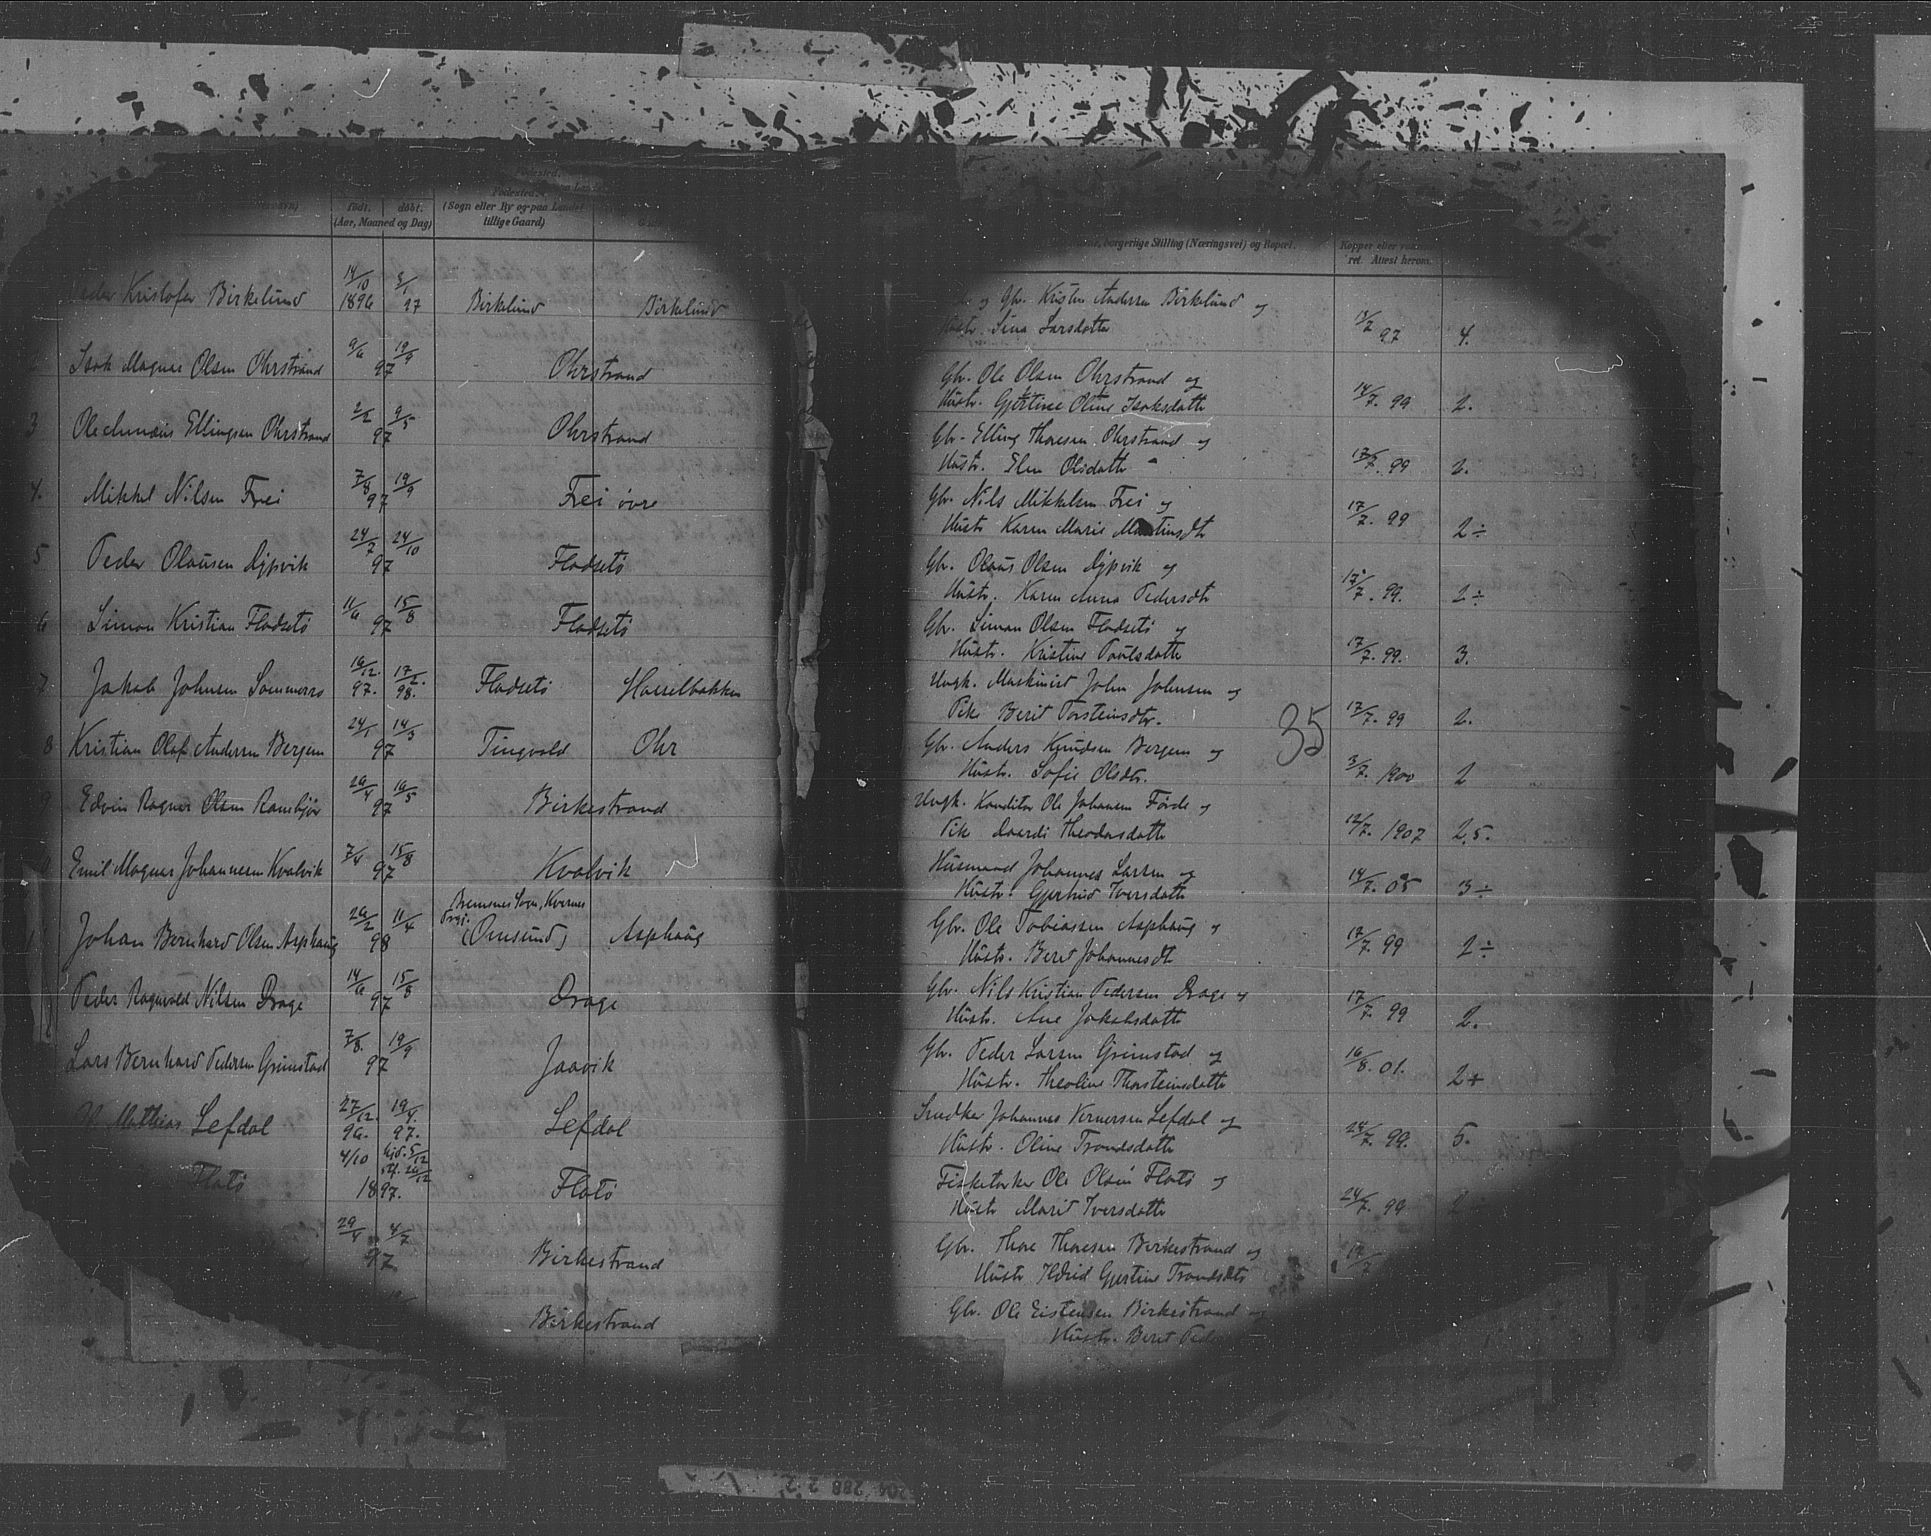 Fødested.
født. døbt. (Sogn eller By og paa Landet
(Aar, Maaned og Dag) tillige Gaard)
borgerlige Stilling (Næringsvei) og Bopæl.
Kopper eller
ret Attest herom.
Kristofer Birkelund 14/10 1896 97 Birkelund Birkelund
og Gbr. Kristen Andersen Birkelund og
Hustr. Sina Larsdatter 97 4.
Isak Magnus Olsen Ohrstrand 9/6 19/9 97 Ohrstrand
Gbr. Ole Olsen Ohrstrand og
Hustr. Gjertine Oline Isaksdatter 14/7. 99 2.
3 Ole Ellingsen Ohrstrand 2/2 9/5 97 Ohrstrand
Gbr. Elling Thoresen Ohrstrand og
Hustr. Elen Olsdatter 99 2.
4. Mikkel Nilsen Frei 7/8 19/9 97 Frei övre
Gbr. Nils Mikkelsen Frei og
Hustr Karen Marie Martinsdt 17/7. 99 2÷
5 Peder Olausen Dypvik 24/7 24/10 97 Fladsetö
Gbr. Olaus Olsen Dypvik og
Hustr. Karen Anna Pedersdtr 17/7. 99. 2÷
6 Simon Kristian Fladsetö 11/6 15/8 97 Fladsetö
Gbr. Simon Olsen Fladsetö og
Hustr. Kristine Paulsdatter 17/7. 99. 3.
7 Jakob Johnsen Sommerro 16/12. 97. 17/2. 98. Fladsetö Hasselbakken
Ungk. Maskinist John Johnsen og
Pike Berit Torsteinsdtr. 17/7. 99 2.
8 Kristian Olaf Andersen Bergem 24/1 14/3 97 Tingvold Ohr
Gbr. Anders Knudsen Bergem og
Hustr. Sofie Olsdtr. 3/7. 1900 2
35
9 Edvin Ragnar Olsen Ramsbjör 26/4 16/5 97 Birkestrand
Ungk. Konditor Ole Johansen Förde og
Pike Theodorsdatter 12/7. 1907 2,5.
Emil Magnus Johannesen Kvalvik 7/4 15/8 97 Kvalvik
Husmand Johannes Larsen og
Hustr. Gjertrud Iversdatter 14/7. 05 3÷
Bremsnes Sogn, Kvernes
Prgj.
Johan Bernhard Olsen Asphaug 26/2 11/4 98 (Omsund) Asphaug
Gbr. Ole Tobiassen Asphaug og
Hustr. Beret Johannesdt 17/7. 99 2÷
Peder Ragnvald Nilsen Drage 14/6 15/8 97 Drage
Gbr. Nils Kristian Pedersen Drage og
Hustr. Ane Jakobsdatter 17/7. 99 2.
Lars Bernhard Pedersen Grimstad 7/8. 19/9 97 Jaavik
Gbr. Peder Larsen Grimstad og
Hustr. Theoline Thorsteinsdatter 16/8. 01. 2+
Mathias Lefdal 27/12. 96. 19/4. 97. Lefdal
Snedker Johannes Vernersen Lefdal og
Hustr. Oline Trondsdatter 24/7. 99. 5.
Flatö 4/10 hjd. 5/12 stf. 26/12 1897. Flatö
Fisketorker Ole Olsen Flatö og
Hustr Marit Iversdatter 24/7. 99
29/4 4/7 97 Birkestrand
Gbr. Thore Thoresen Birkestrand og
Hustr Ildrid Gjertine Trondsdtr
Birkestrand
Gbr. Ole Eistensen Birkestrand og
Hustr. Beret